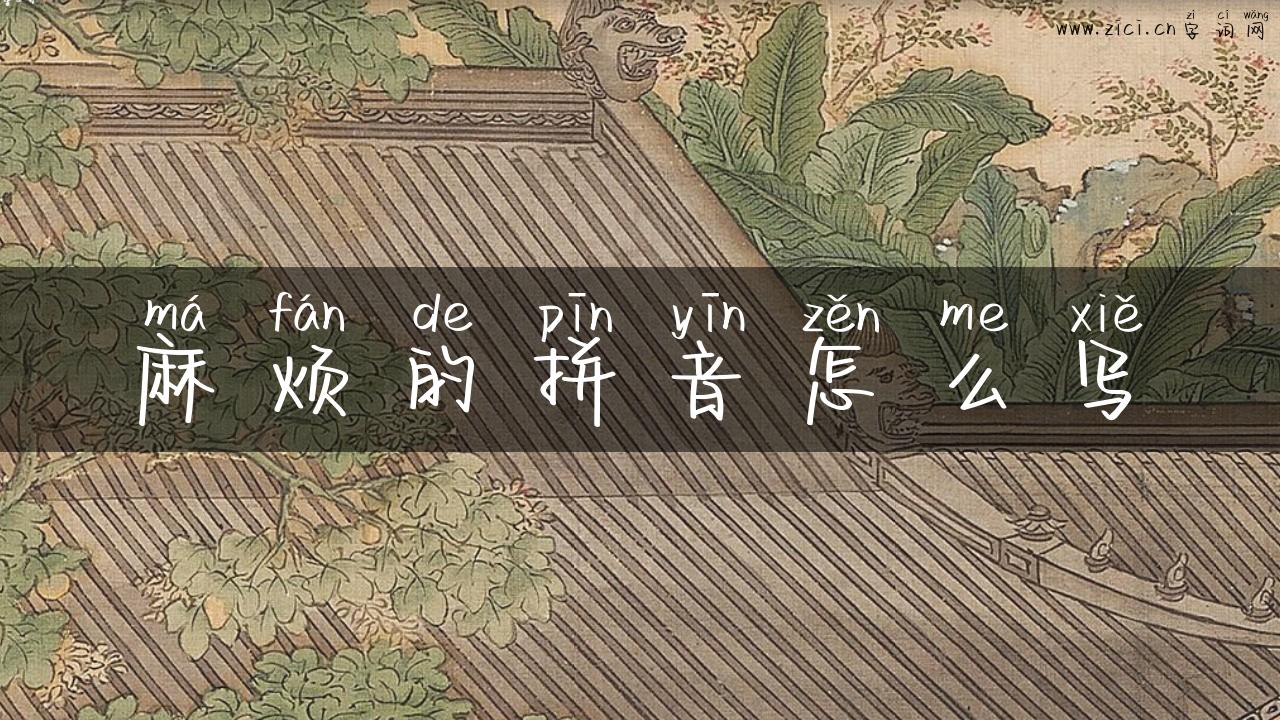 zì cí wǎng
www.zici.cn 字词网
má fán de pīn yīn zěn me xiě
麻烦的拼音怎么写